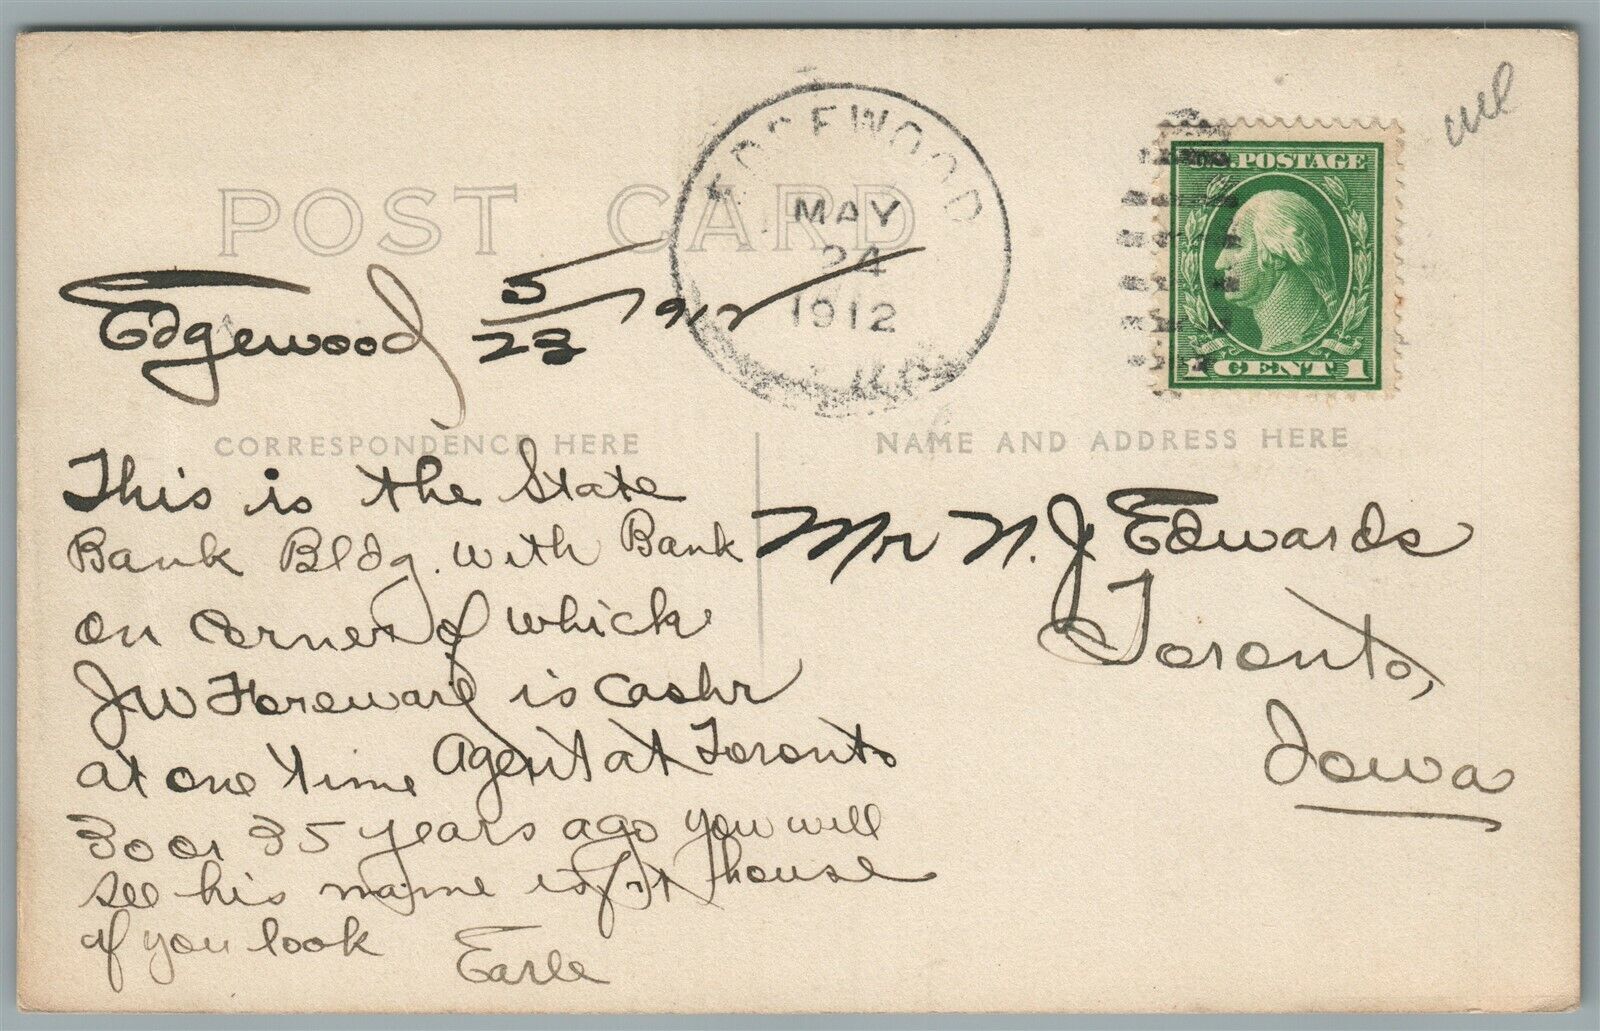 POST CARD
EDGEWOOD
MAY
24
1912
U.S. POSTAGE
1 CENT 1
Edgewood 5/23 1912
CORRESPONDENCE HERE
NAME AND ADDRESS HERE
This is the State
Bank Bldg. with Bank
on corner of which
JW Foreward is Cashr
at one time Agent at Toronto
30 or 35 years ago you will
see his name is house
if you look
Earle
Mr N. J. Edwards
Toronto,
Iowa